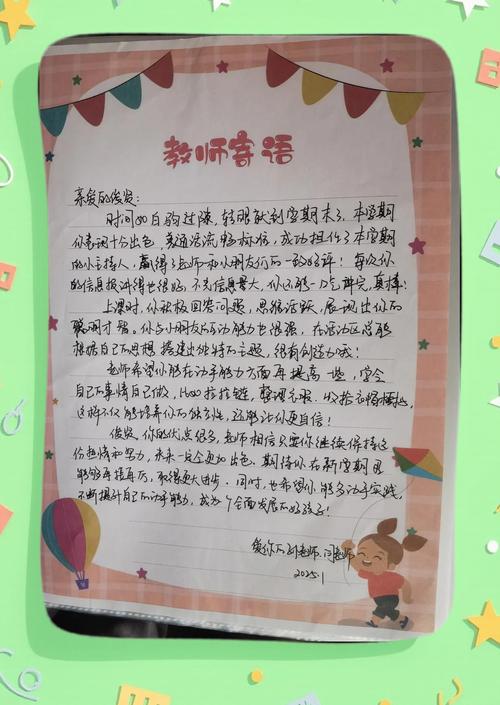 教师寄语
亲爱的俊贤：
时间如白驹过隙，转眼就到学期末了，本学期
你表现十分出色，普通话流畅标准，成功担任了本学期
的小主持人，赢得了老师和小朋友们的一致好评！每次你
的信息播讲得也很好，不光信息量大，你还能一口气讲完，真棒！
上课时，你积极回答问题，思维活跃，展现出你的
聪明才智。你与小朋友互动能力也很强，在活动区总能
根据自己的思想搭建出独特的主题，很有创造力哦！
老师希望你能在动手能力方面再提高一些，学会
自己的事情自己做，拉拉链，整理衣服
这样不仅能培养你的独立性，还能让你更自信！
俊贤，你的优点很多，老师相信只要你继续保持这
份热情和努力，未来一定会更加出色。期待你在新学期里
能够再接再厉，取得更大进步。同时，也希望你能多动手实践，
不断提升自己的动手能力，成为一个全面发展的好孩子！
爱你的孙老师、闫老师
2025.1